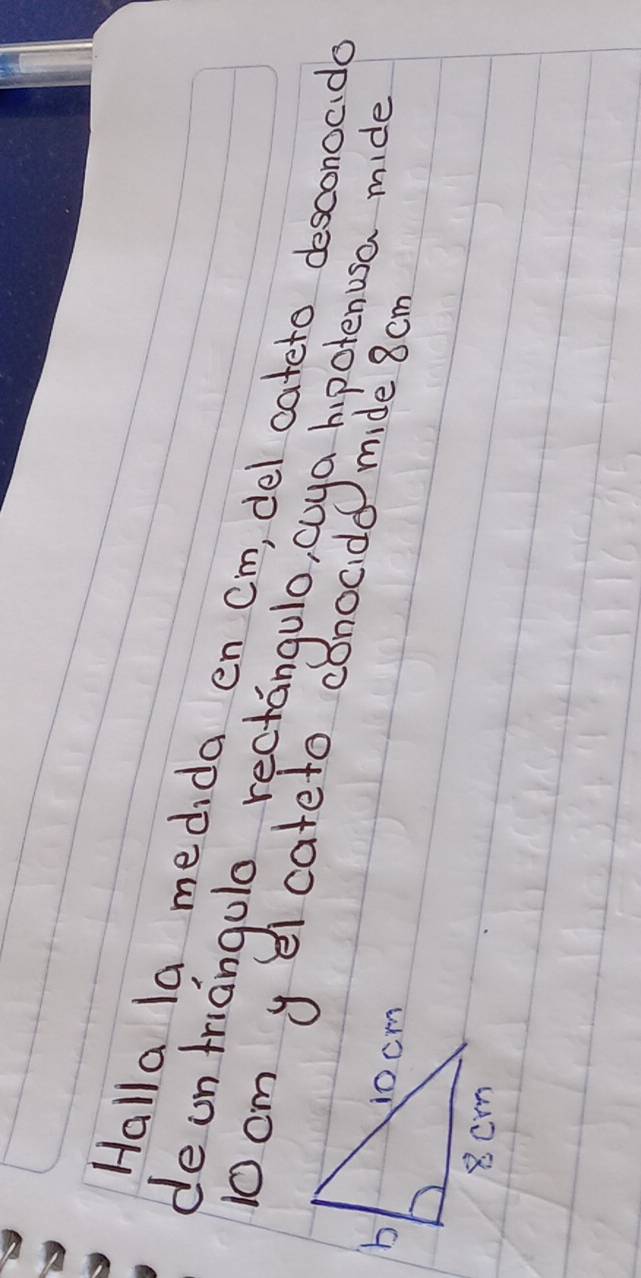 Halla la medida en cm, del cateto desconocido
de un triángulo rectángulo, cuya hipotenusa mide
10 cm y el cateto conocido mide 8 cm
h
10 cm
8 cm